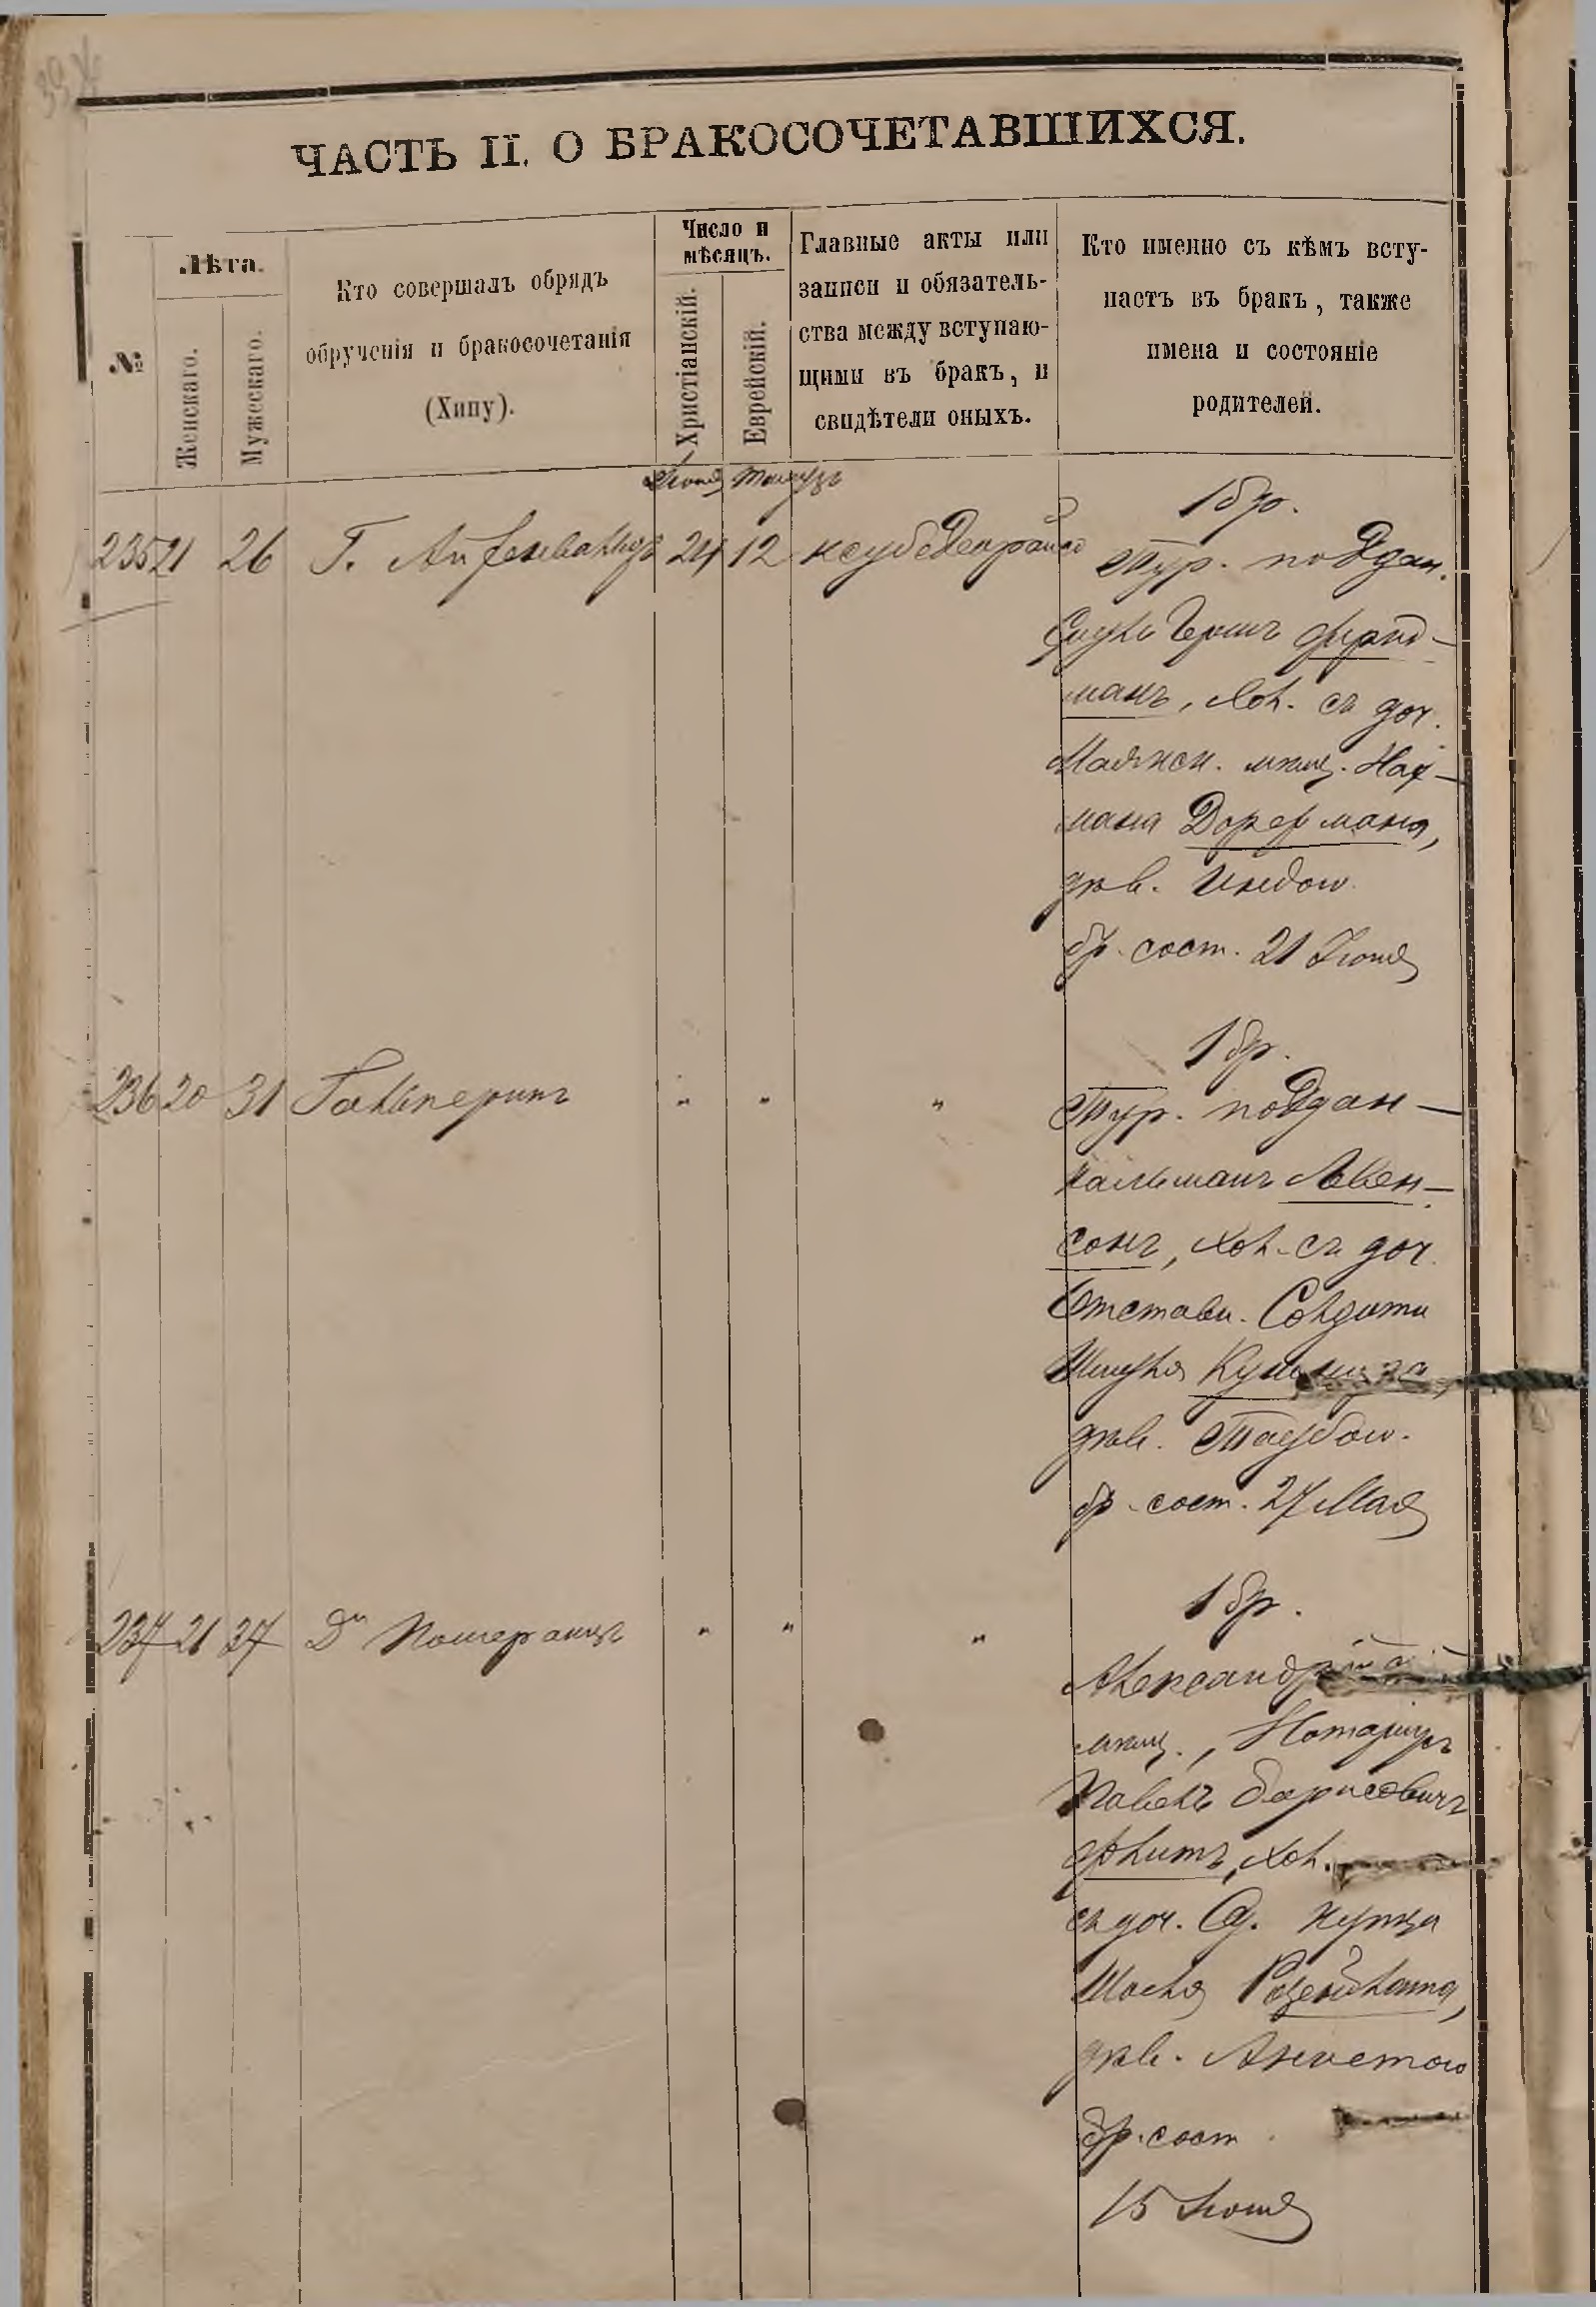 ЧАСТЬ II. О БРАКОСОЧЕТАВШИХСЯ.
№
Лѣта.
Женскаго.
Мужескаго.
Кто совершалъ обрядъ
обрученія и бракосочетанія
(Хипу).
Число и
мѣсяцъ.
Христіанскій.
Еврейскій.
Главные акты или
записи и обязатель-
ства между вступаю-
щими въ бракъ, и
свидѣтели оныхъ.
Кто именно съ кѣмъ всту-
паетъ въ бракъ, также
имена и состояніе
родителей.
Іюня Тамузъ
235 21 26 Г. 24 12
1 бр.
Тур. поддан.
Гершъ Фрид-
манъ, хол. съ доч.
Маякск. мѣщ. Нах-
мана Дорфмана,
дѣв. Индою
бр. сост. 21 Іюня
236 20 31 Гальперинъ " " "
1 бр.
Тур. поддан-
Кальманъ Левен-
сонъ, хол. съ доч.
Отставн. Солдата
Шмуля
дѣв. Таубою.
бр. сост. 27 Мая
237 21 37 Дръ Померанцъ " " "
1 бр.
мѣщ., Нотаріусъ
Павелъ Борисовичъ
хол.
съ доч. Од. купца
дѣв. Аннетою
бр. сост.
15 Іюня